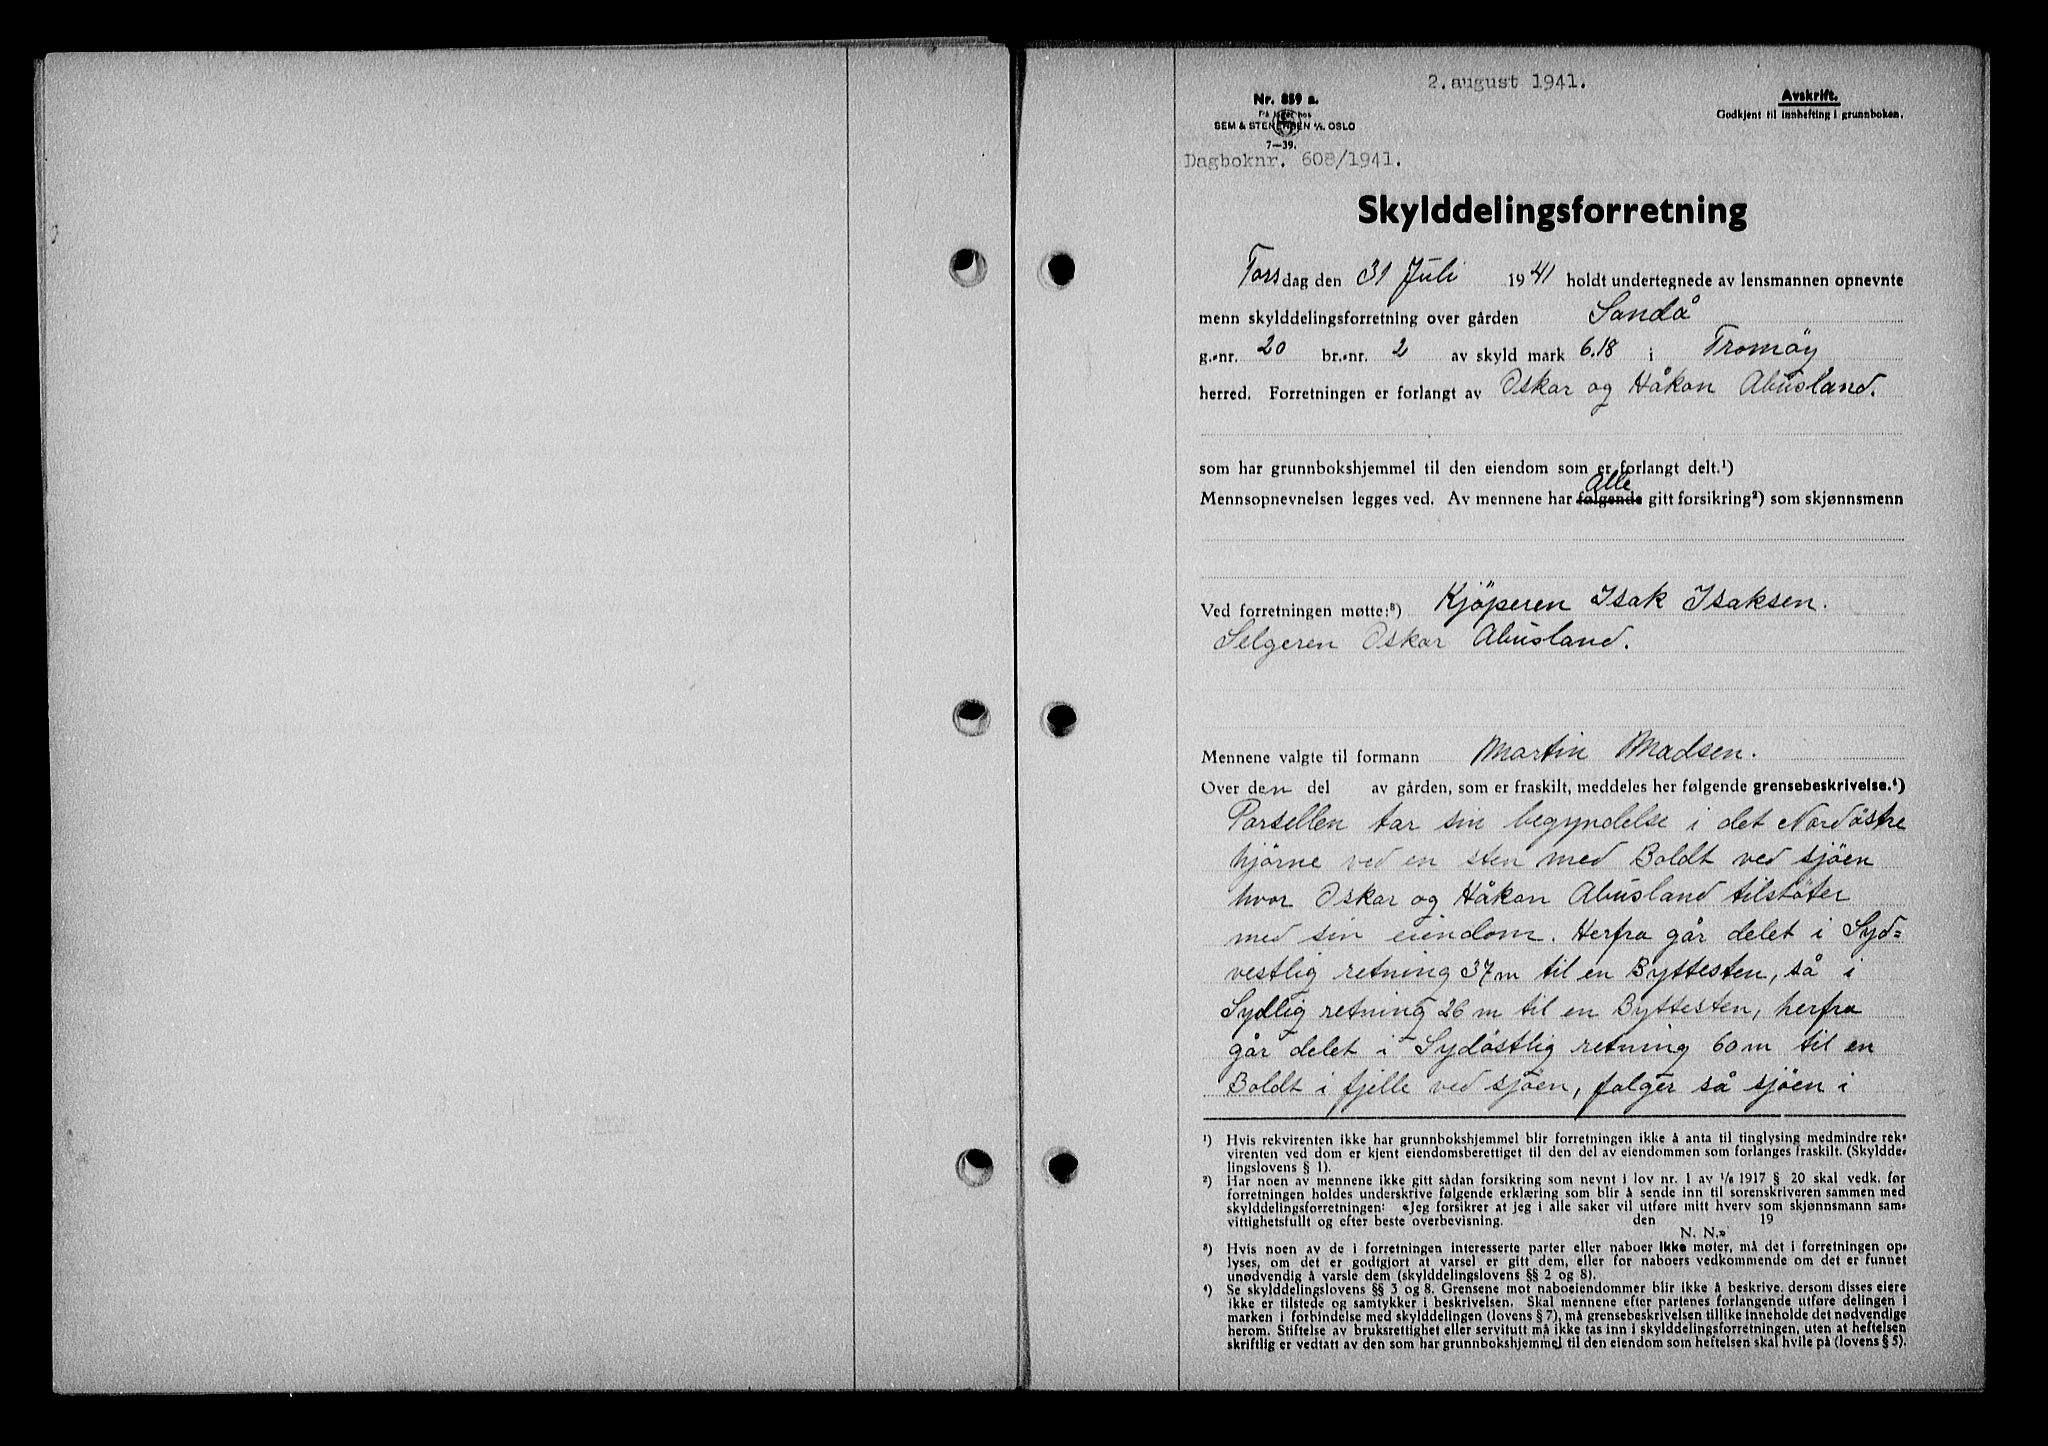 2. august 1941.
Nr. 859 a.
På lager hos
SEM & STENERSEN A/S. OSLO
7—39.
Avskrift.
Godkjent til innhefting i grunnboken.
Dagboknr. 608/1941.
Skylddelingsforretning
Torsdag den 31 Juli 1941 holdt undertegnede av lensmannen opnevnte
menn skylddelingsforretning over gården Sandå
g.-nr. 20 br.-nr. 2 av skyld mark 6.18 i Tromöy
herred. Forretningen er forlangt av Oskar og Håkon Abusland.
som har grunnbokshjemmel til den eiendom som er forlangt delt.¹)
Alle
Mennsopnevnelsen legges ved. Av mennene har følgende gitt forsikring²) som skjønnsmenn
Ved forretningen møtte:³) Kjöperen Isak Isaksen.
Selgeren Oskar Abusland.
Mennene valgte til formann Martin Madsen.
Over den del av gården, som er fraskilt, meddeles her følgende grensebeskrivelse.⁴)
Parsellen tar sin begyndelse i det Nordöstre
hjörne ved en sten med Boldt ved sjöen
hvor Oskar og Håkon Abusland tilstöter
med sin eiendom. Herfra går delet i Syd=
vestlig retning 37 m til en Byttesten, så i
Sydlig retning 26 m til en Byttesten, herfra
går delet i Sydöstlig retning 60 m til en
Boldt i fjelle ved sjöen, følger så sjöen i
¹) Hvis rekvirenten ikke har grunnbokshjemmel blir forretningen ikke å anta til tinglysing medmindre rek-
virenten ved dom er kjent eiendomsberettiget til den del av eiendommen som forlanges fraskilt. (Skyldde-
lingslovens § 1).
²) Har noen av mennene ikke gitt sådan forsikring som nevnt i lov nr. 1 av 1/6 1917 § 20 skal vedk. før
forretningen holdes underskrive følgende erklæring som blir å sende inn til sorenskriveren sammen med
skylddelingsforretningen: «Jeg forsikrer at jeg i alle saker vil utføre mitt hverv som skjønnsmann sam-
vittighetsfullt og efter beste overbevisning. den 19
N. N.»
³) Hvis noen av de i forretningen interesserte parter eller naboer ikke møter, må det i forretningen op-
lyses, om det er godtgjort at varsel er gitt dem, eller for naboers vedkommende om det er funnet
unødvendig å varsle dem (skylddelingslovens §§ 2 og 8).
⁴) Se skylddelingslovens §§ 3 og 8. Grensene mot naboeiendommer blir ikke å beskrive, dersom disses eiere
ikke er tilstede og samtykker i beskrivelsen. Skal mennene efter partenes forlangende utføre delingen i
marken i forbindelse med skylddelingen (lovens § 7), må grensebeskrivelsen tillike inneholde det nødvendige
herom. Stiftelse av bruksrettighet eller servitutt må ikke tas inn i skylddelingsforretningen, uten at heftelsen
skriftlig er vedtatt av den som har grunnbokshjemmel til den eiendom som heftelsen skal hvile på (lovens § 5).